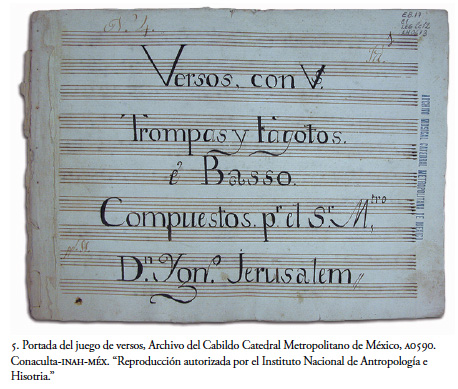 Versos. con VV.
Trompas y fagotos.
é Basso.
Compuestos. pr. el Sr. Mtro
Dn. Ygno. Jerusalem
ARCHIVO MUSICAL CATEDRAL METROPOLITANA DE MEXICO
5. Portada del juego de versos, Archivo del Cabildo Catedral Metropolitano de México, A0590.
Conaculta-INAH-MÉX. “Reproducción autorizada por el Instituto Nacional de Antropología e
Hisotria.”